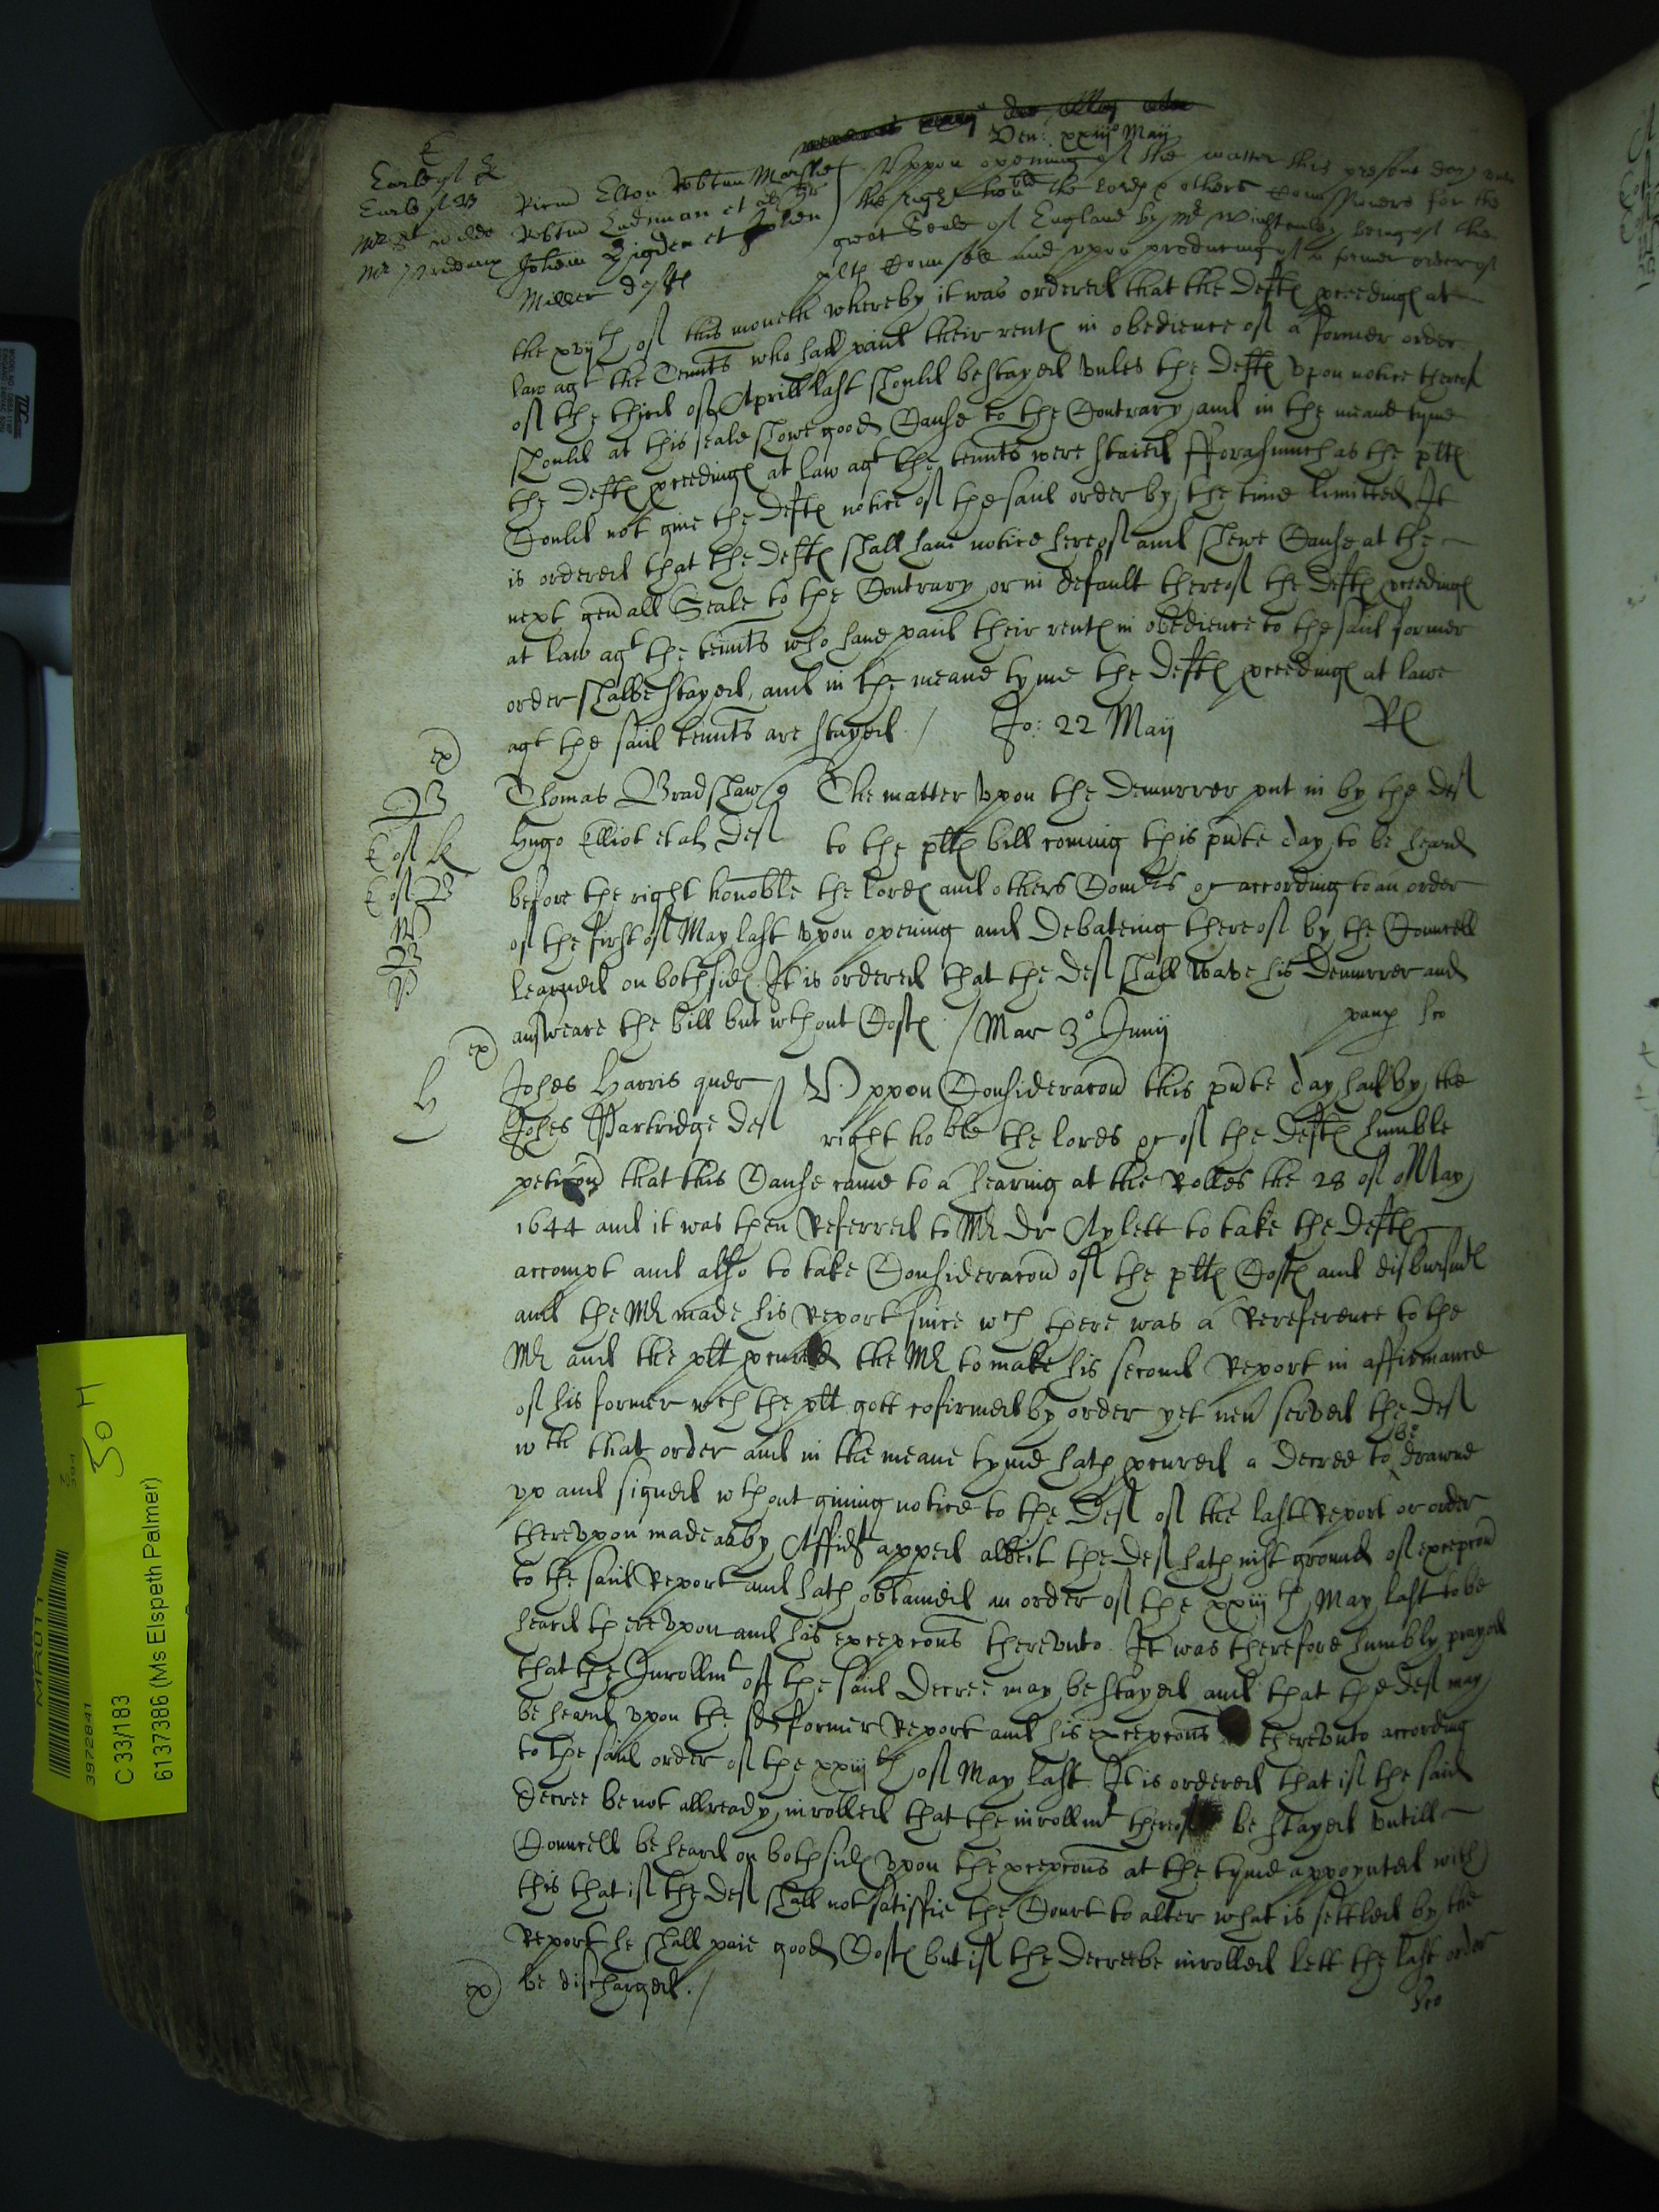 Ven: xxiijo Maij
Earle of K
Earle of B
Mr St wilde
Mr Prideaux
Ricus Elton Robtum Marshe
Robtus Ludman et al qr
Johem Higden et
Miller defts
Vppon opening of the matter this present day vnto
the right honble the lordes & others Comissioners for the
great Seale of England by Mr being of the
pltes Counsell and vpon produceing of a former order of
the xvijth of this moneth whereby it was ordered that the deftes pceedinges at
law agt the Tennts who had paid their rentes in obedience of a former order
of the third of Aprill last should be stayed vnles the deftes vpon notice thereof
should at this seale shewe good Cause to the Contrary and in the meane tyme
the deftes pceedinges at law agt the tennts were staied Fforasmuch as the pltes
Could not give the deftes notice of the said order by the time limitted It
is ordered that the deftes shall have notice hereof and shewe Cause at the
next genall Seale to the Contrary or in default thereof the deftes pceedinges
at law agt the tennts who have paid their rentes in obedience to the said former
order shalbe stayed, and in the meane tyme the deftes pceedinges at lawe
agt the said tennts are stayed / Jo: 22 Maij
ex)
B
E of K
E of B
W
B
P
Thomas Bradshaw q
Hugo Elliot et al def
The matter vpon the demurrer put in by the def
to the pltes bill coming this pnte day to be heard
before the right honoble the lordes and others Comrs &c according to an order
of the first of May last vpon opening and debateing thereof by the Councell
learned on both sides It is ordered that the def shall wave his demurrer and
answeare the bill but wthout Costes / Mar 3o Junij
ex)
H
Johes Harris quer
Johes Partridge def
Vppon Consideracon this pnte day had by the
right hoble the lords &c of the deftes humble
peticon that this Cause came to a hearing at the Rolles the 28 of May
1644 and it was then Referred to Mr Dr Aylett to take the deftes
accompt and also to take Consideracon of the pltes Costes and disbursmtes
and the Mr made his Report since wch there was a Rereference to the
Mr and the plt pcured the Mr to make his second Report in affirmance
of his former wch the plt gott cofirmed by order yet nev served the def
wth that order and in the meane tyme hath pcured a decree to be drawne
vp and signed wthout giving notice to the def of the last Report or order
therevpon made as by Affidt appeed albeit the def hath iust ground of excepcon
to the said Report and hath obtained an order of the xxiijth May last to be
heard therevpon and his excepcons therevnto. It was therefore humbly prayed
that the Inrollmt of the said decree may be stayed and that the def may
be heard vpon the sd former Report and his excepcons therevnto according
to the said order of the xxiijth of May last. It is ordered that if the said
decree be not allready inrolled that the inrollmt thereof be stayed vntill
Councell be heard on both sides vpon the excepcons at the tyme appoynted with
this that if the def shall not satisfie the Court to alter what is settled by the
Report he shall paie good Costes but if the decree be inrolled lett the last order
be discharged. /
ex)
MR011
3972841
C 33/183
6137386 (Ms Elspeth Palmer)
30 H